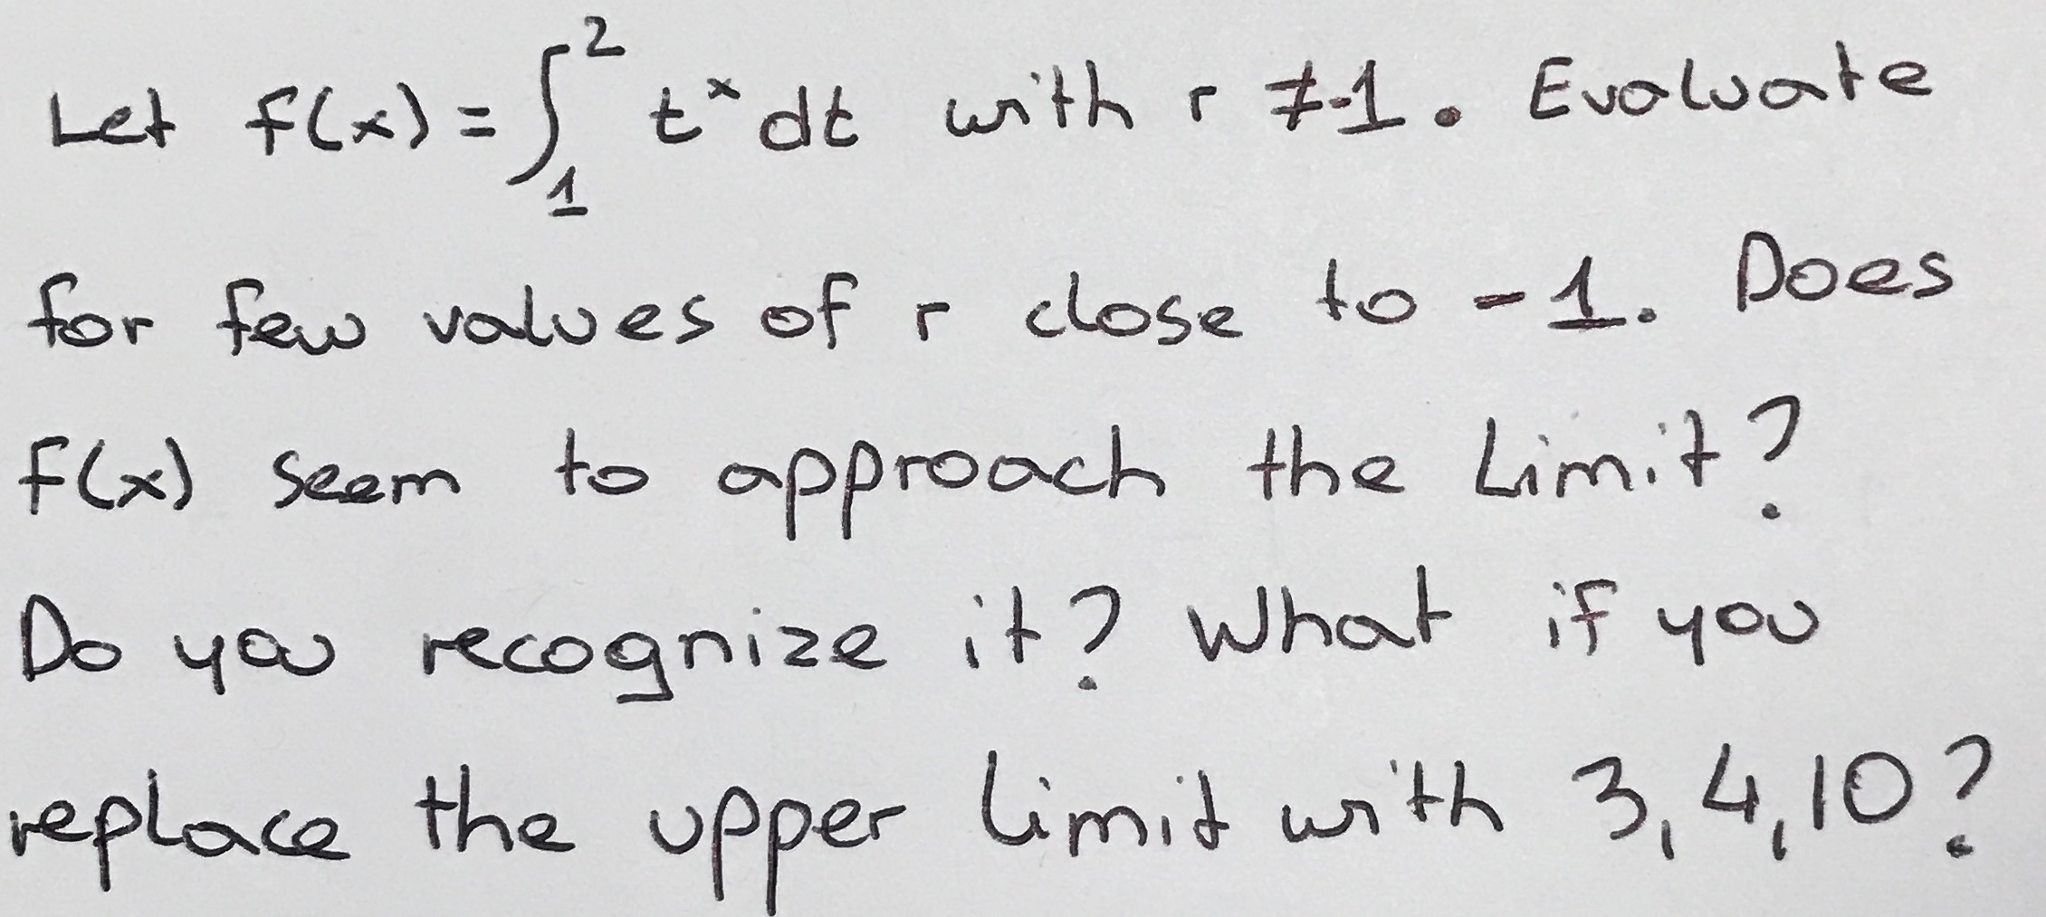 Let f(x) = ∫₁² tˣ dt with r ≠ -1. Evaluate
for few values of r close to -1. Does
f(x) seem to approach the limit?
Do you recognize it? What if you
replace the upper limit with 3, 4, 10?